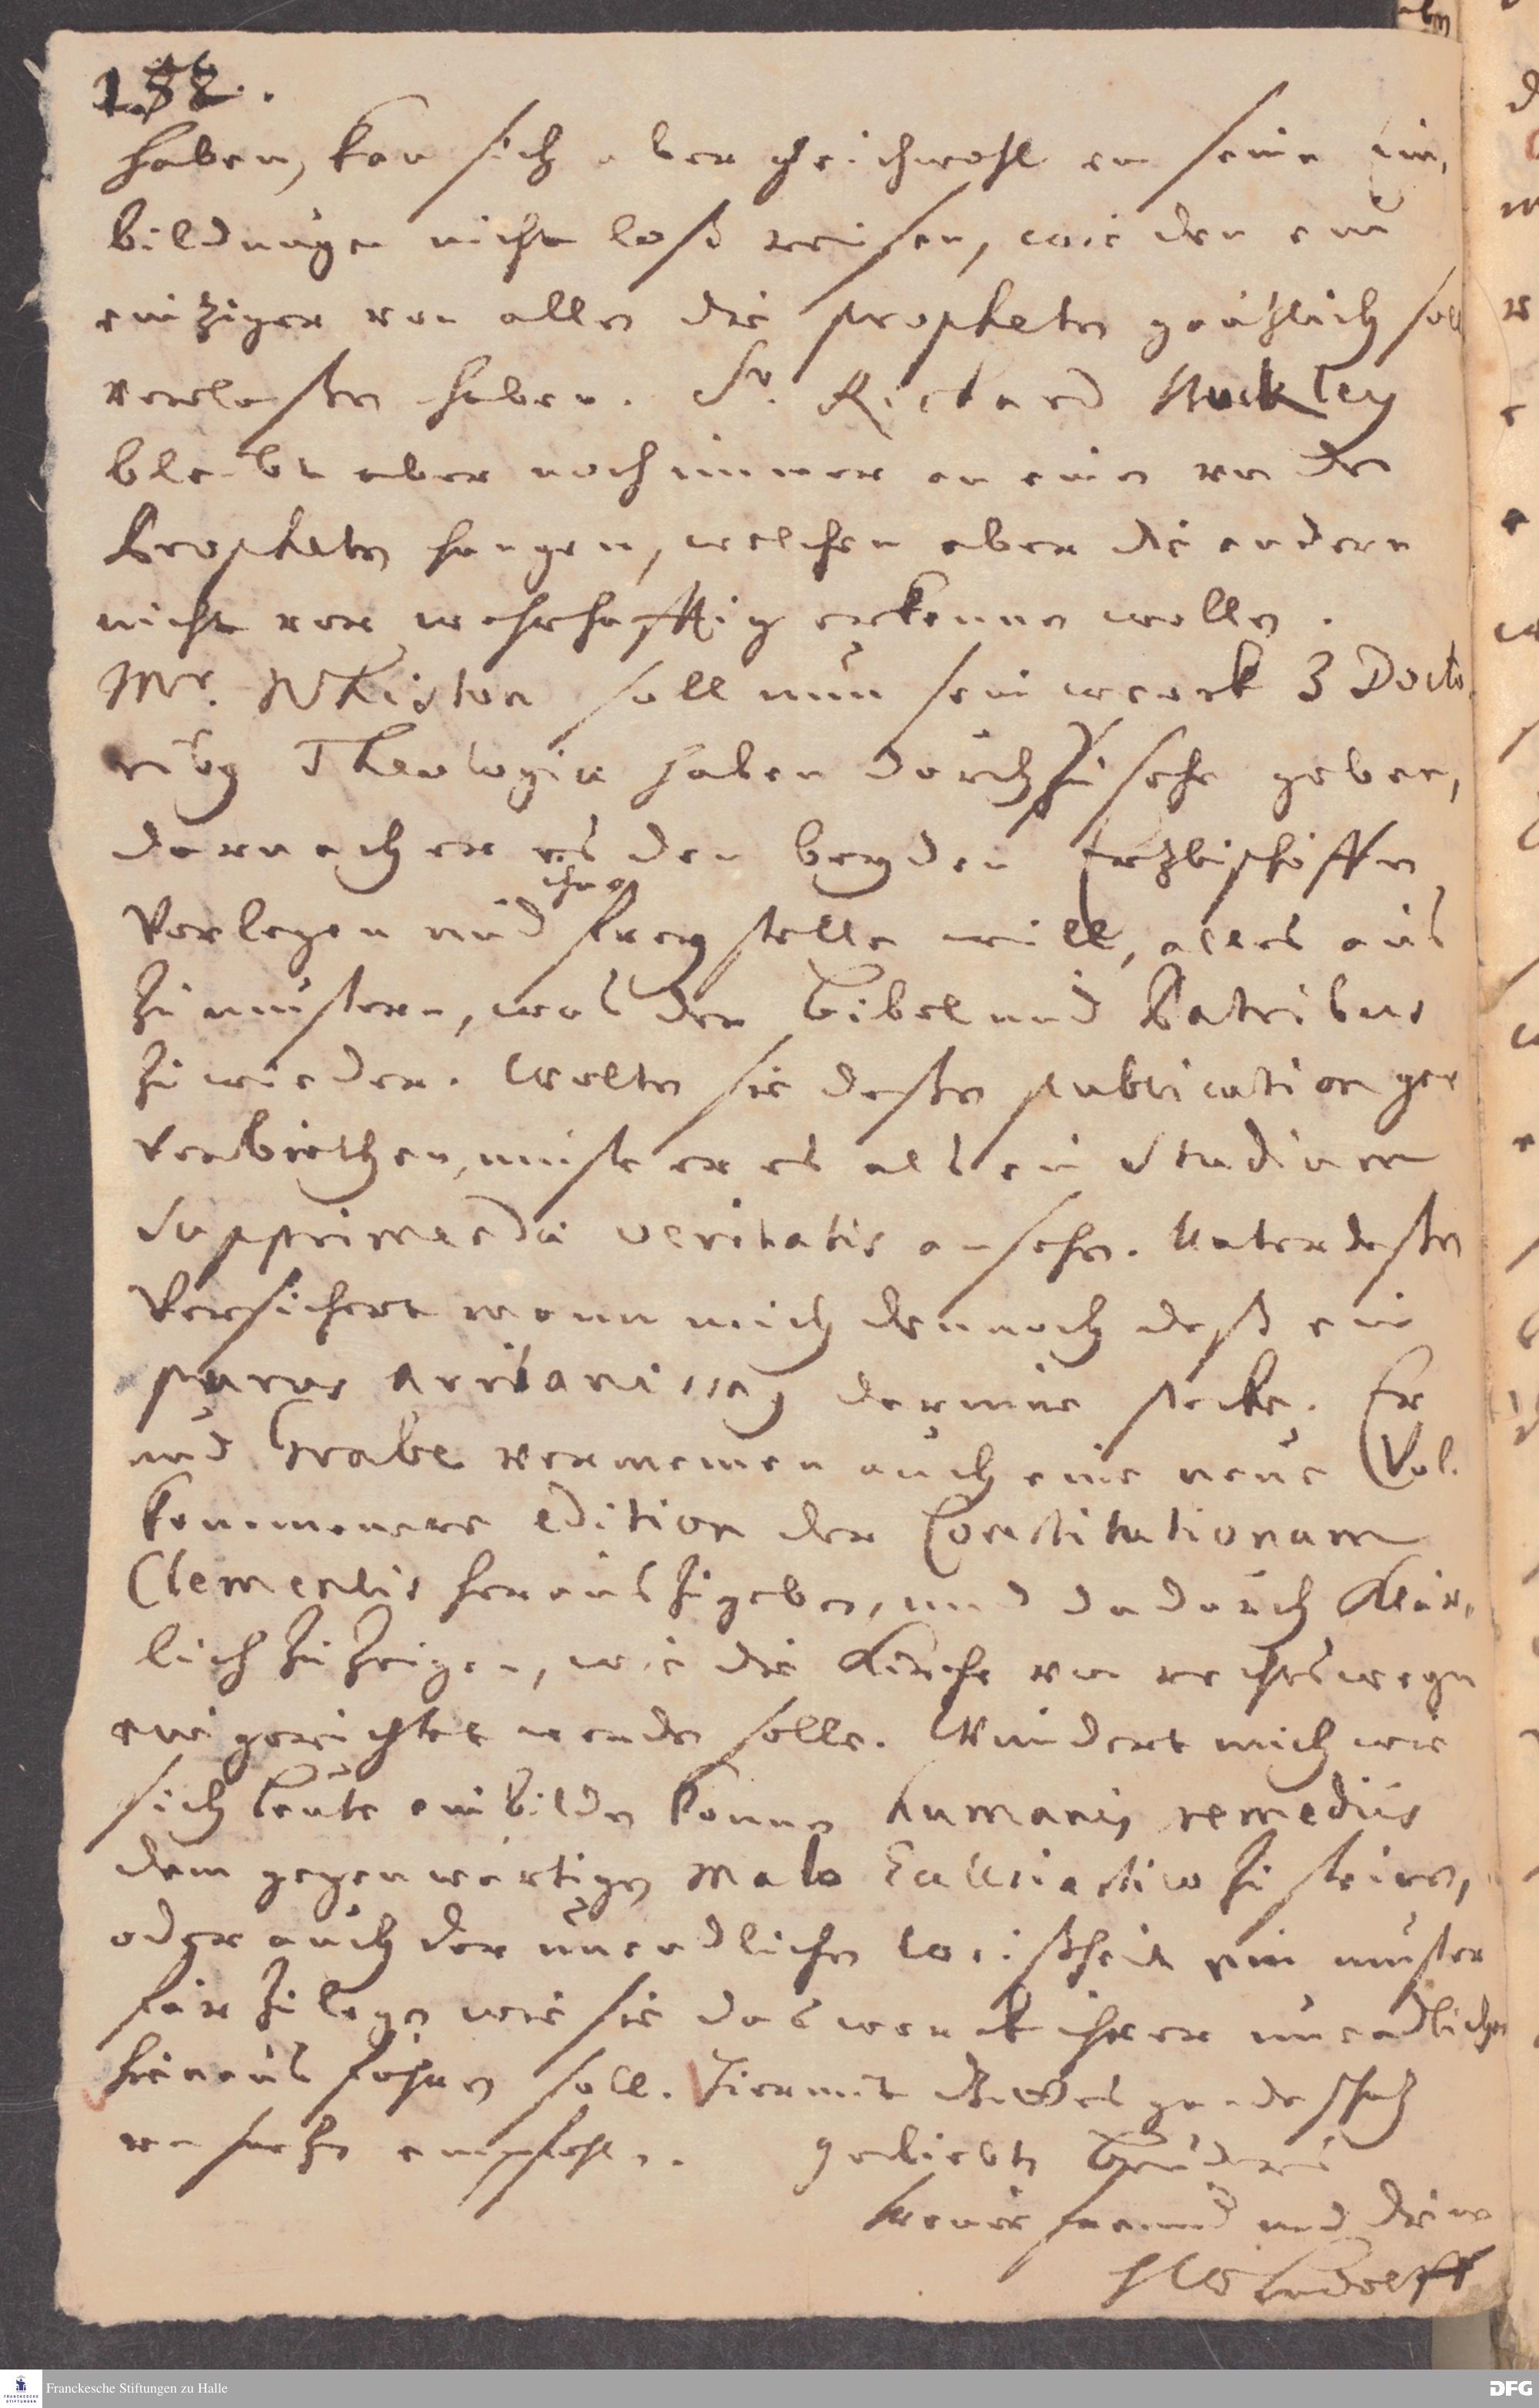 158.
haben, kan sich aber gleichwohl von seine Ein-
bildungen nicht loß reisen, wie den ein
eintziger von allen die propheten gäntzlich soll
verlaßen haben. Sr. Richard Buckley
bleibt aber noch immer an einen von den
Propheten hangen, welchen aber die andern
nicht vor wahrhafftig erkennen wollen.
Mr. Whiston soll nun sein werck 3 Docto-
ribus Theologiæ haben durch zu sehen geben,
darnach er es den beyden Ertzbischöffen
ihnen
vorlegen und frey stellen will, alles aus
zu mustern, was der Bibel und Patribus
zu wieder. Wolten sie deßen publication gar
verbiethen, müste er es als ein studium
supprimendæ veritatis ansehen. Unterdeßen
versichert mann mich dennoch daß ein
purus arrianismus darinne stecke. Er
und Grabe vermeinen auch eine neue Vol-
kommenere edition der Constitutionum
Clementis heraus zu geben, und dadurch klär-
lich zu zeigen, wie die Kirche von rechtswegen
eingerichtet werden solle. Wundert mich wie
sich leute einbilden können humanis remediis
dem gegenwärtigen malo Ecclesiastico zu steuren,
oder auch der unendlichen Weißheit ein muster
für zu legen wie sie das werck ihrer unendlichen
hinaus führen soll. Hiermit Gottes gnade schutz
von hertzen empfohlen. geliebten Bruders
treuer freund und diener
HWLudolff
Franckesche Stiftungen zu Halle
DFG